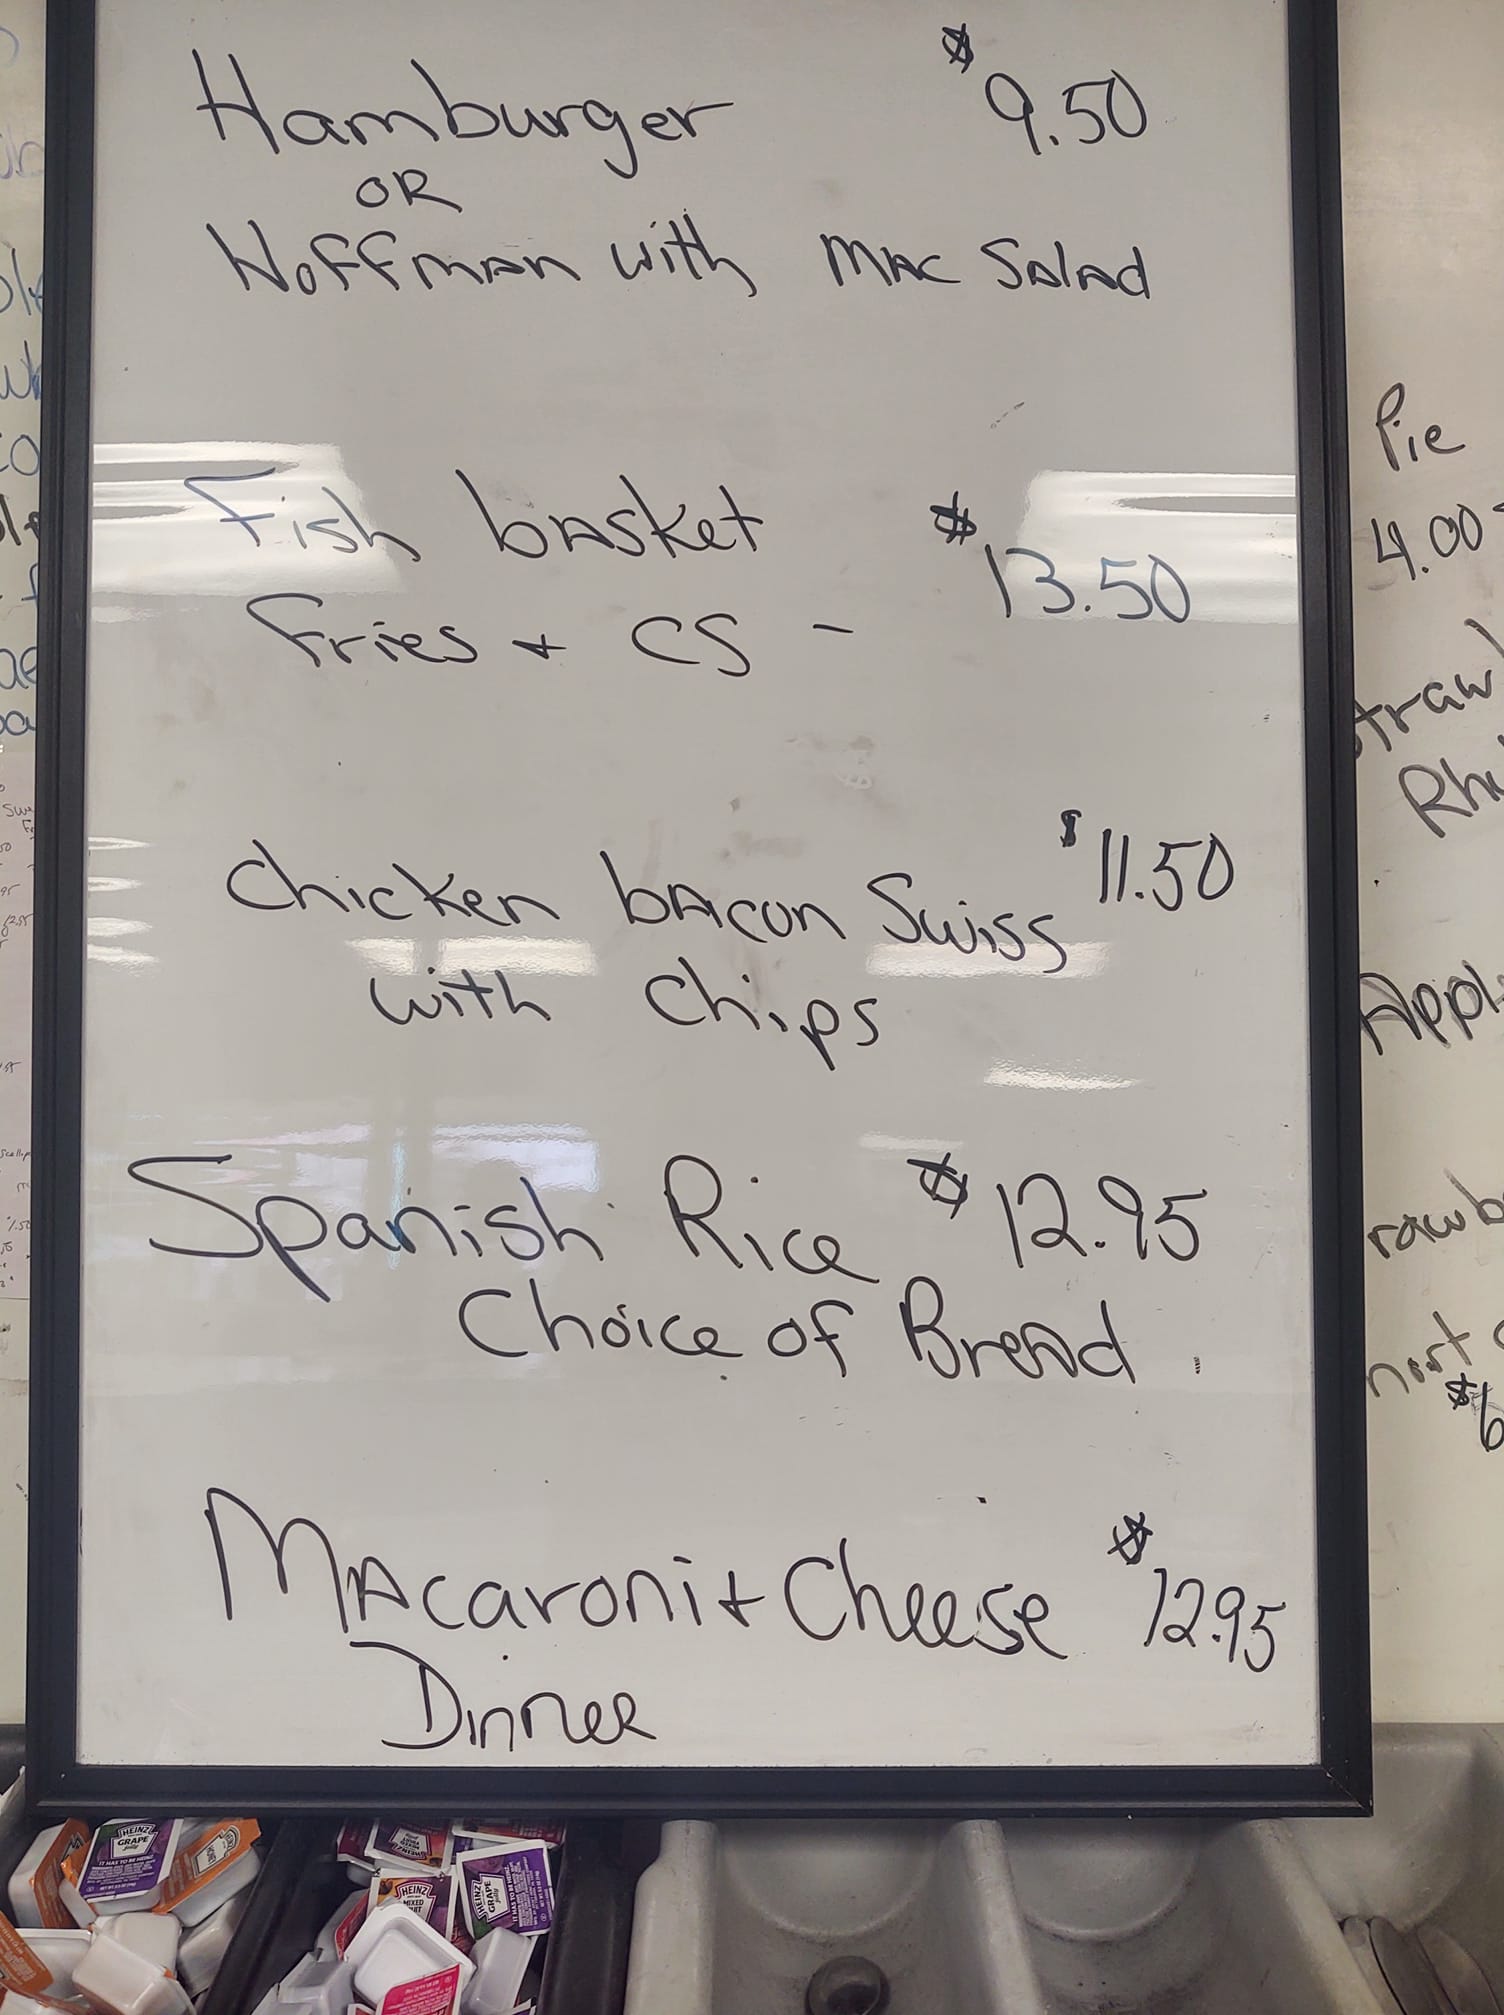 Hamburger $9.50
OR
Hoffman with Mac Salad
Fish basket $13.50
Fries + CS -
Chicken bacon Swiss $11.50
with Chips
Spanish Rice $12.95
Choice of Bread
Macaroni + Cheese $12.95
Dinner
Pie
4.00
HEINZ
GRAPE
jelly
IT HAS TO BE HEINZ
HEINZ
MIXED
HEINZ
GRAPE
jelly